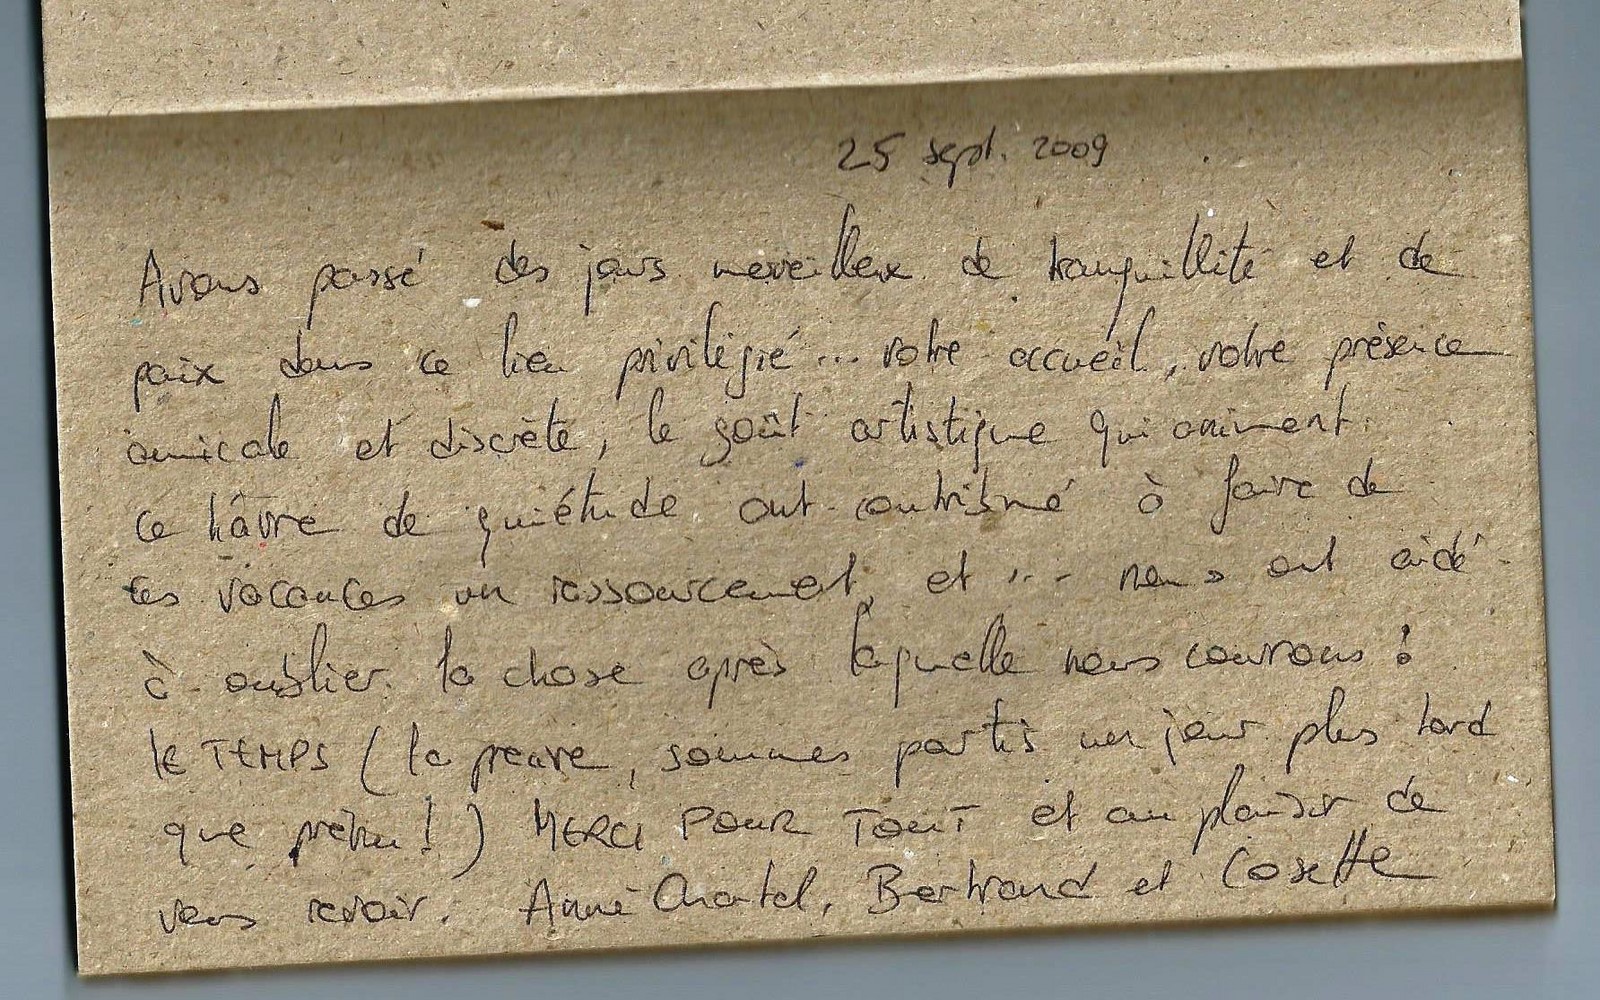 25 sept. 2009
Avons passé des jours merveilleux de tranquillité et de
paix dans ce lieu privilégié... votre accueil, votre présence
amicale et discrète, le goût artistique qui animent
ce hâvre de quiétude ont contribué à faire de
ces vacances un ressourcement, et ... nous ont aidé
à oublier la chose après laquelle nous courrons :
le TEMPS (la preuve, sommes partis un jour plus tard
que prévu!) MERCI POUR TOUT et au plaisir de
vous revoir. Anne Chatel, Bertrand et Cosette